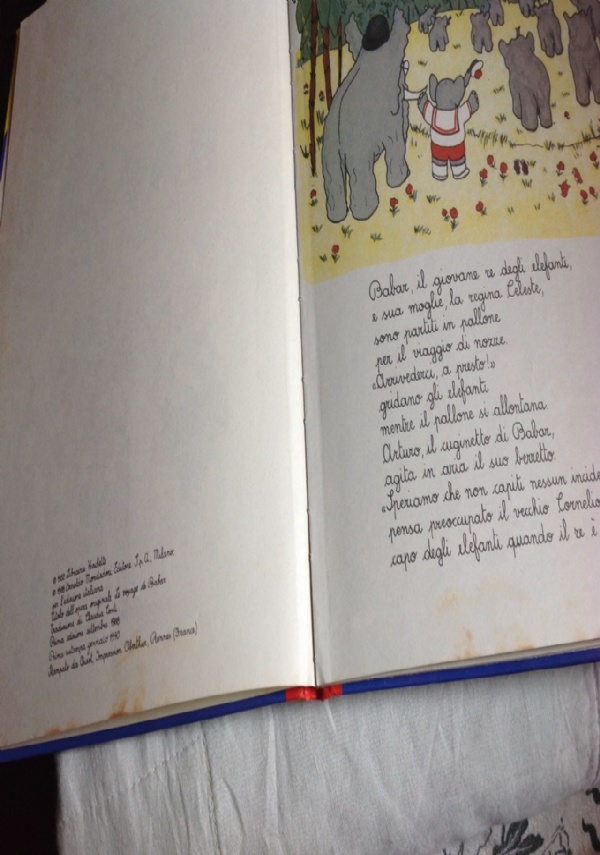 © 1932 Librairie Hachette
© 1988 Arnoldo Mondadori Editore S.p.A., Milano
per l'edizione italiana
Titolo dell'opera originale Le voyage de Babar
Traduzione di Claudia Conti
Prima edizione settembre 1988
Prima ristampa gennaio 1990
Stampato da Ouest Impressions Oberthur, Rennes (Francia)
Babar, il giovane re degli elefanti,
e sua moglie, la regina Celeste,
sono partiti in pallone
per il viaggio di nozze.
«Arrivederci, a presto!»
gridano gli elefanti
mentre il pallone si allontana.
Arturo, il cuginetto di Babar,
agita in aria il suo berretto.
«Speriamo che non capiti nessun incide
pensa preoccupato il vecchio Cornelio
capo degli elefanti quando il re è